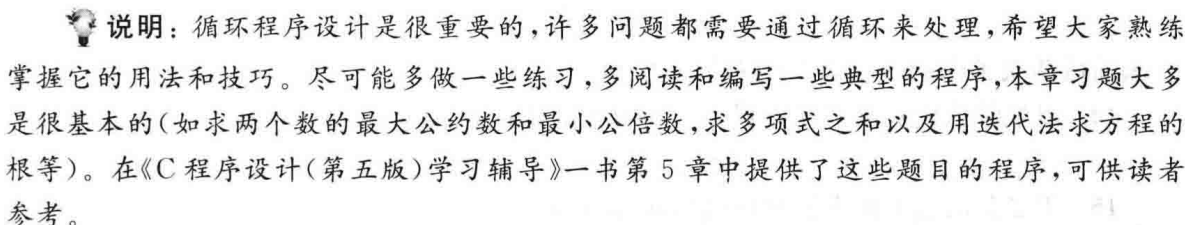 说明：循环程序设计是很重要的，许多问题都需要通过循环来处理，希望大家熟练
掌握它的用法和技巧。尽可能多做一些练习，多阅读和编写一些典型的程序，本章习题大多
是很基本的（如求两个数的最大公约数和最小公倍数，求多项式之和以及用迭代法求方程的
根等）。在《C 程序设计（第五版）学习辅导》一书第 5 章中提供了这些题目的程序，可供读者
参考。